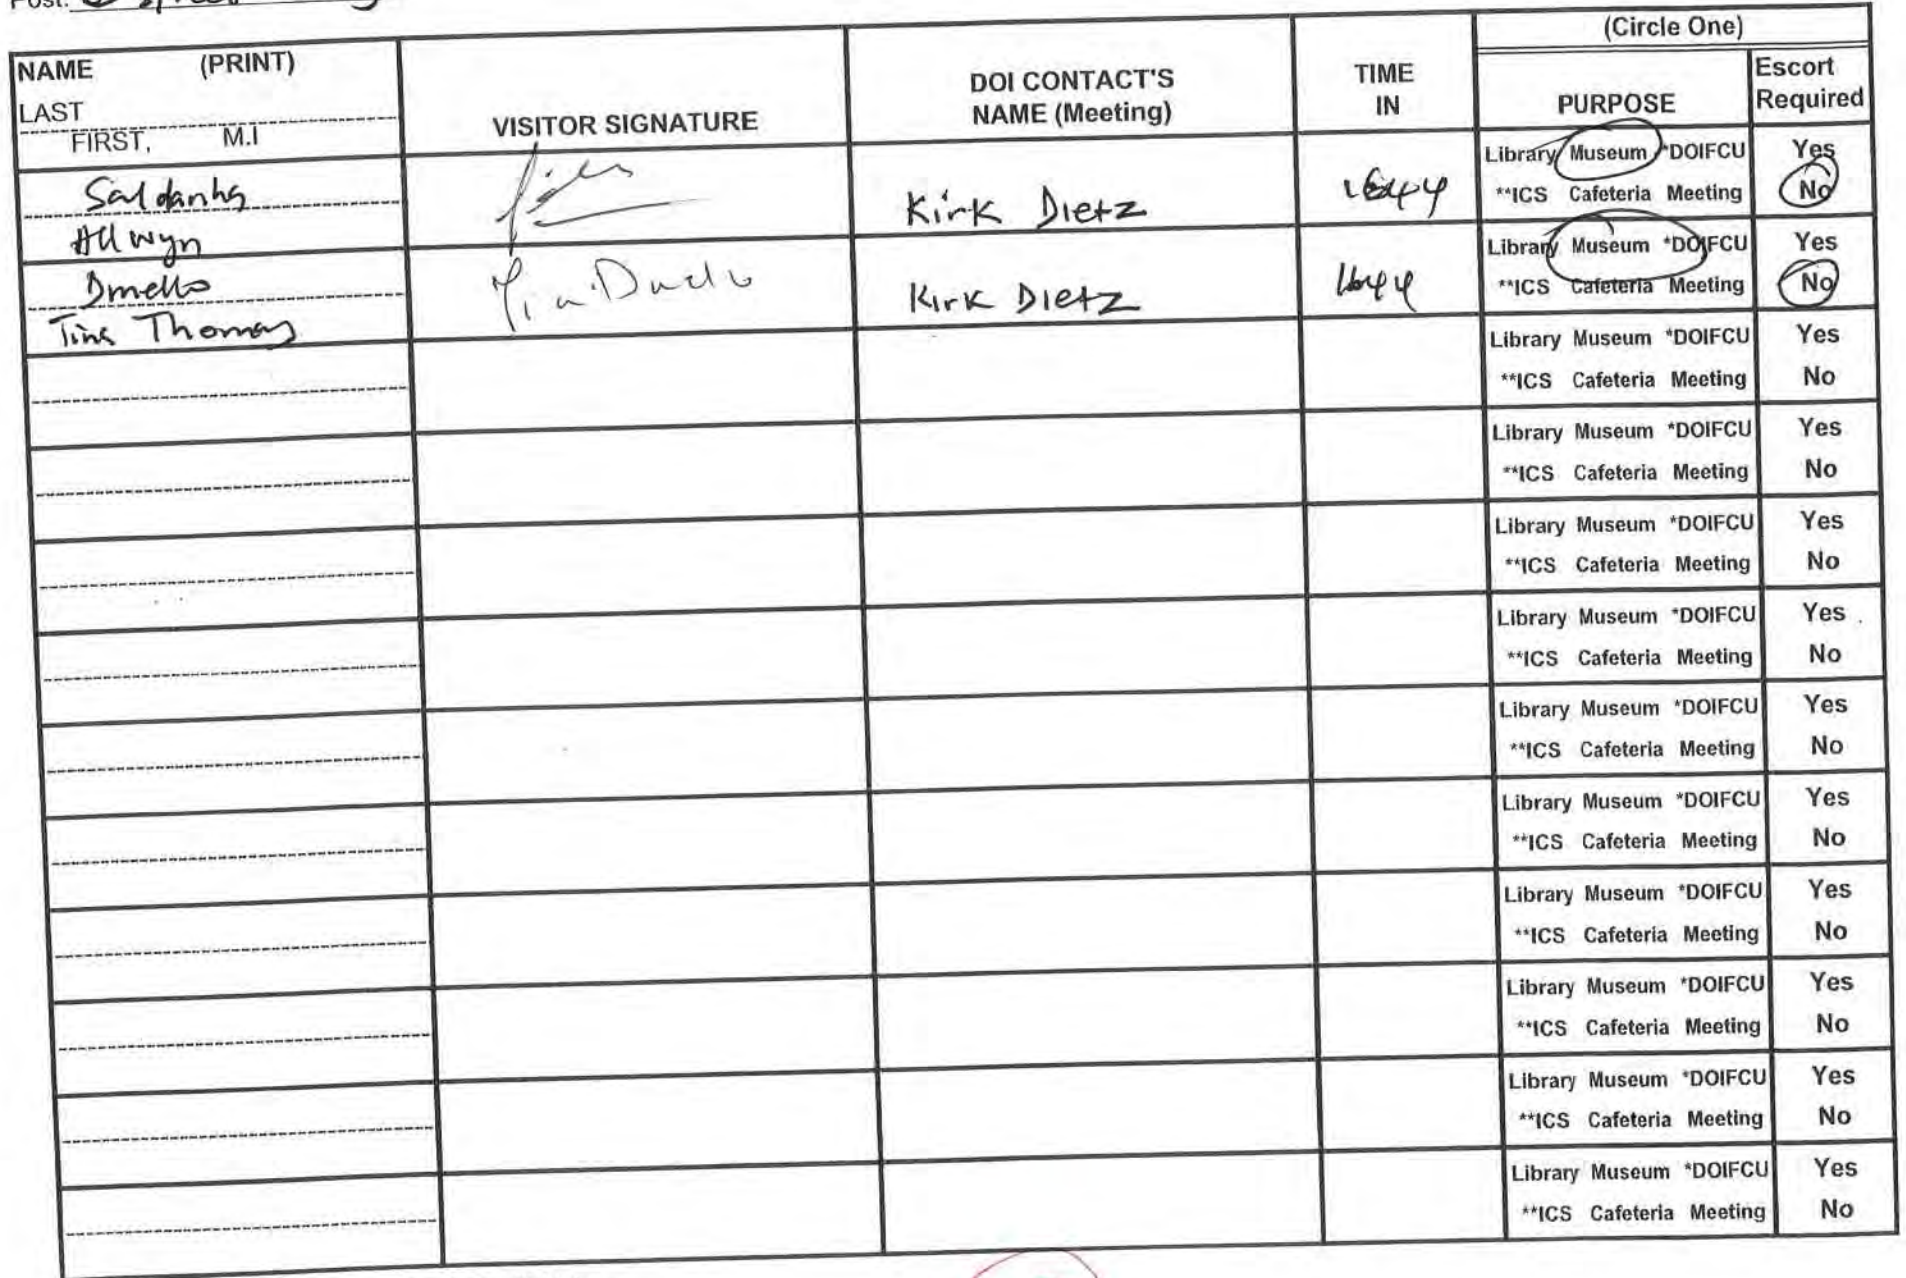 Post:
(Circle One)
NAME (PRINT)
LAST
FIRST, M.I
VISITOR SIGNATURE
DOI CONTACT'S
NAME (Meeting)
TIME
IN
PURPOSE
Escort
Required
Saldanha
Allwyn
Kirk Dietz
1644
Library Museum *DOIFCU Yes
**ICS Cafeteria Meeting No
Dmello
Tina Thomas
Kirk Dietz
1644
Library Museum *DOIFCU Yes
**ICS Cafeteria Meeting No
Library Museum *DOIFCU Yes
**ICS Cafeteria Meeting No
Library Museum *DOIFCU Yes
**ICS Cafeteria Meeting No
Library Museum *DOIFCU Yes
**ICS Cafeteria Meeting No
Library Museum *DOIFCU Yes
**ICS Cafeteria Meeting No
Library Museum *DOIFCU Yes
**ICS Cafeteria Meeting No
Library Museum *DOIFCU Yes
**ICS Cafeteria Meeting No
Library Museum *DOIFCU Yes
**ICS Cafeteria Meeting No
Library Museum *DOIFCU Yes
**ICS Cafeteria Meeting No
Library Museum *DOIFCU Yes
**ICS Cafeteria Meeting No
Library Museum *DOIFCU Yes
**ICS Cafeteria Meeting No